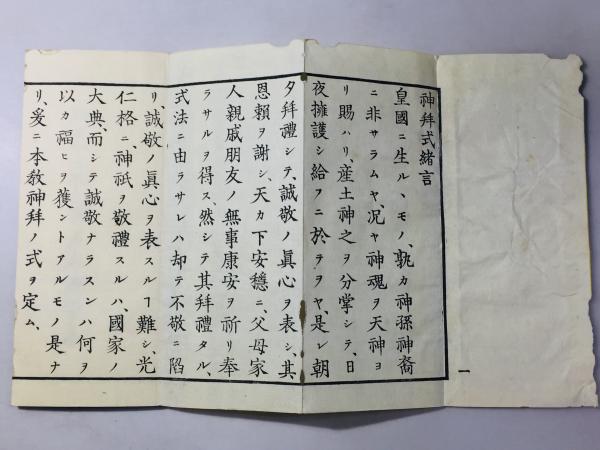 神拜式緒言
皇國ニ生ルヽモノ、孰カ神孫神裔
ニ非サラムヤ、况ヤ神魂ヲ天神ヨ
リ賜ハリ、産土神之ヲ分掌シテ、日
夜擁護シ給フニ於テヲヤ、是レ朝
夕拜禮シテ、誠敬ノ眞心ヲ表シ、其
恩頼ヲ謝シ、天カ下安穩ニ、父母家
人親戚朋友ノ無事康安ヲ祈リ奉
ラサルヲ得ス、然シテ其拜禮タル、
式法ニ由ラサレハ却テ不敬ニ陷
リ、誠敬ノ眞心ヲ表スルヿ難シ、光
仁格ニ、神祇ヲ敬禮スルハ、國家ノ
大典、而シテ誠敬ナラスンハ何ヲ
以カ福ヒヲ獲ントアルモノ是ナ
リ、爰ニ本教神拜ノ式ヲ定ム、
一